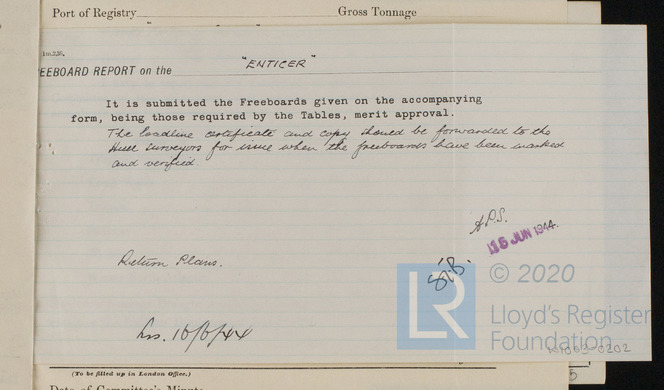 Port of Registry Gross Tonnage
EEBOARD REPORT on the "ENTICER"
It is submitted the Freeboards given on the accompanying
form, being those required by the Tables, merit approval.
The loadline certificate and copy should be forwarded to the
Hull surveyors for issue when the freeboards have been marked
and verified.
A.P.S.
16 JUN 1944
Return Plans.
LR © 2020
Lloyd's Register
Foundation
16/6/44
(To be filled up in London Office.)
Date of Committee's Minute